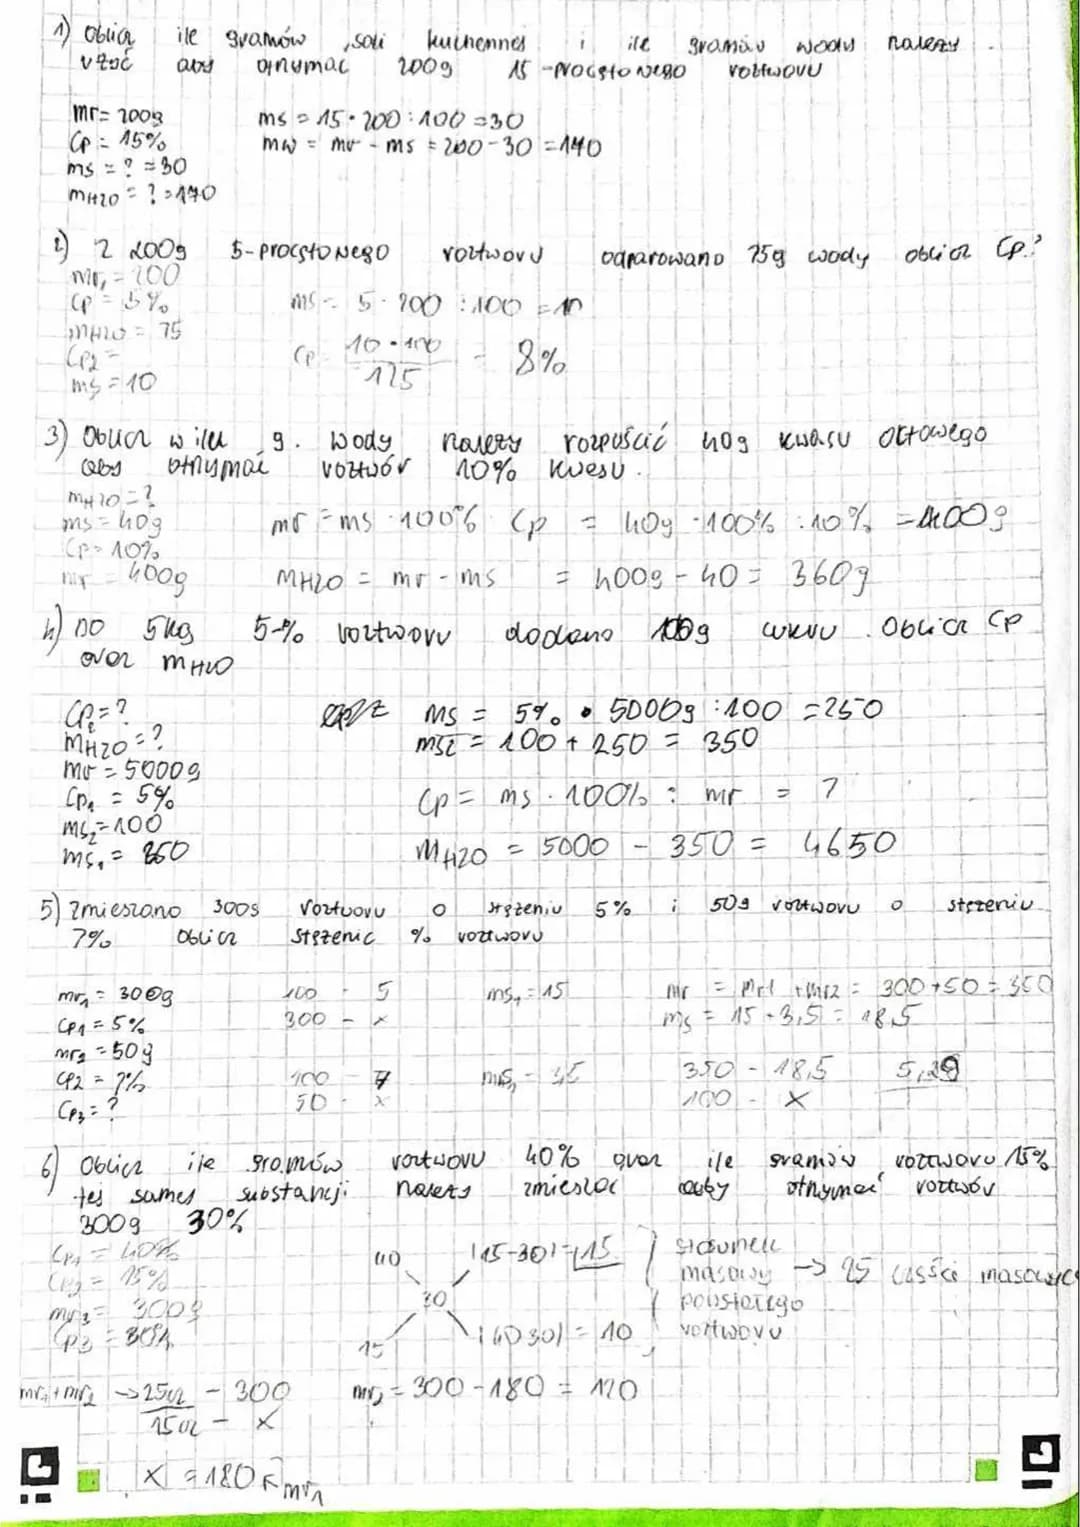 1) Oblicz ile gramów soli kuchennej i ile gramów wody należy
wziąć aby otrzymać 200g 15-procętowego roztworu
mr= 200g
Cp= 15%
ms = ? =30
mH2O = ? =170
ms = 15 · 200 : 100 =30
mw = mr - ms = 200-30 =170
2) Z 200g 5-procętowego roztworu odparowano 75g wody oblicz Cp.?
mr1 = 200
Cp = 5%
mH2O = 75
Cp2 =
ms = 10
ms = 5 · 200 : 100 = 10
Cp = 10 · 100 / 125 = 8%
3) Oblicz w ilu g. wody należy rozpuścić 40g kwasu octowego
aby otrzymać roztwór 10% kwasu.
mH2O = ?
ms = 40g
Cp= 10%
mr = 400g
mr = ms · 100% Cp = 40g · 100% : 10% = 400g
mH2O = mr - ms = 400g - 40 = 360g
4) DO 5kg 5-% roztworu dodano 100g cukru. Oblicz Cp
oraz mH2O
Cp2 = ?
mH2O = ?
mr = 5000g
Cp1 = 5%
ms2 = 100
ms1 = 250
ms = 5% · 5000g : 100 = 250
ms2 = 100 + 250 = 350
Cp = ms · 100% : mr = 7
mH2O = 5000 - 350 = 4650
5) Zmieszano 300g roztworu o stężeniu 5% i 50g roztworu o stężeniu
7% Oblicz stężenie % roztworu
mr1 = 300g
Cp1 = 5%
mr2 = 50g
Cp2 = 7%
Cp3 = ?
100 - 5
300 - x
ms1 = 15
100 - 7
50 - x
ms2 = 3,5
mr = mr1 + mr2 = 300+50 = 350
ms = 15 + 3,5 = 18,5
350 - 18,5
100 - x
5,29
6) Oblicz ile gramów roztworu 40% oraz ile gramów roztworu 15%
tej samej substancji należy zmieszać aby otrzymać roztwór
300g 30%
Cp1 = 40%
Cp2 = 15%
mr3 = 300g
Cp3 = 30%
40 |15-30| = 15
30
15 |40 30| = 10
stosunek
masowy → 25 części masowych
powstałego
roztworu
mr1 + mr2 → 25cz - 300
15cz - x
x = 180 ← mr1
mr2 = 300 - 180 = 120